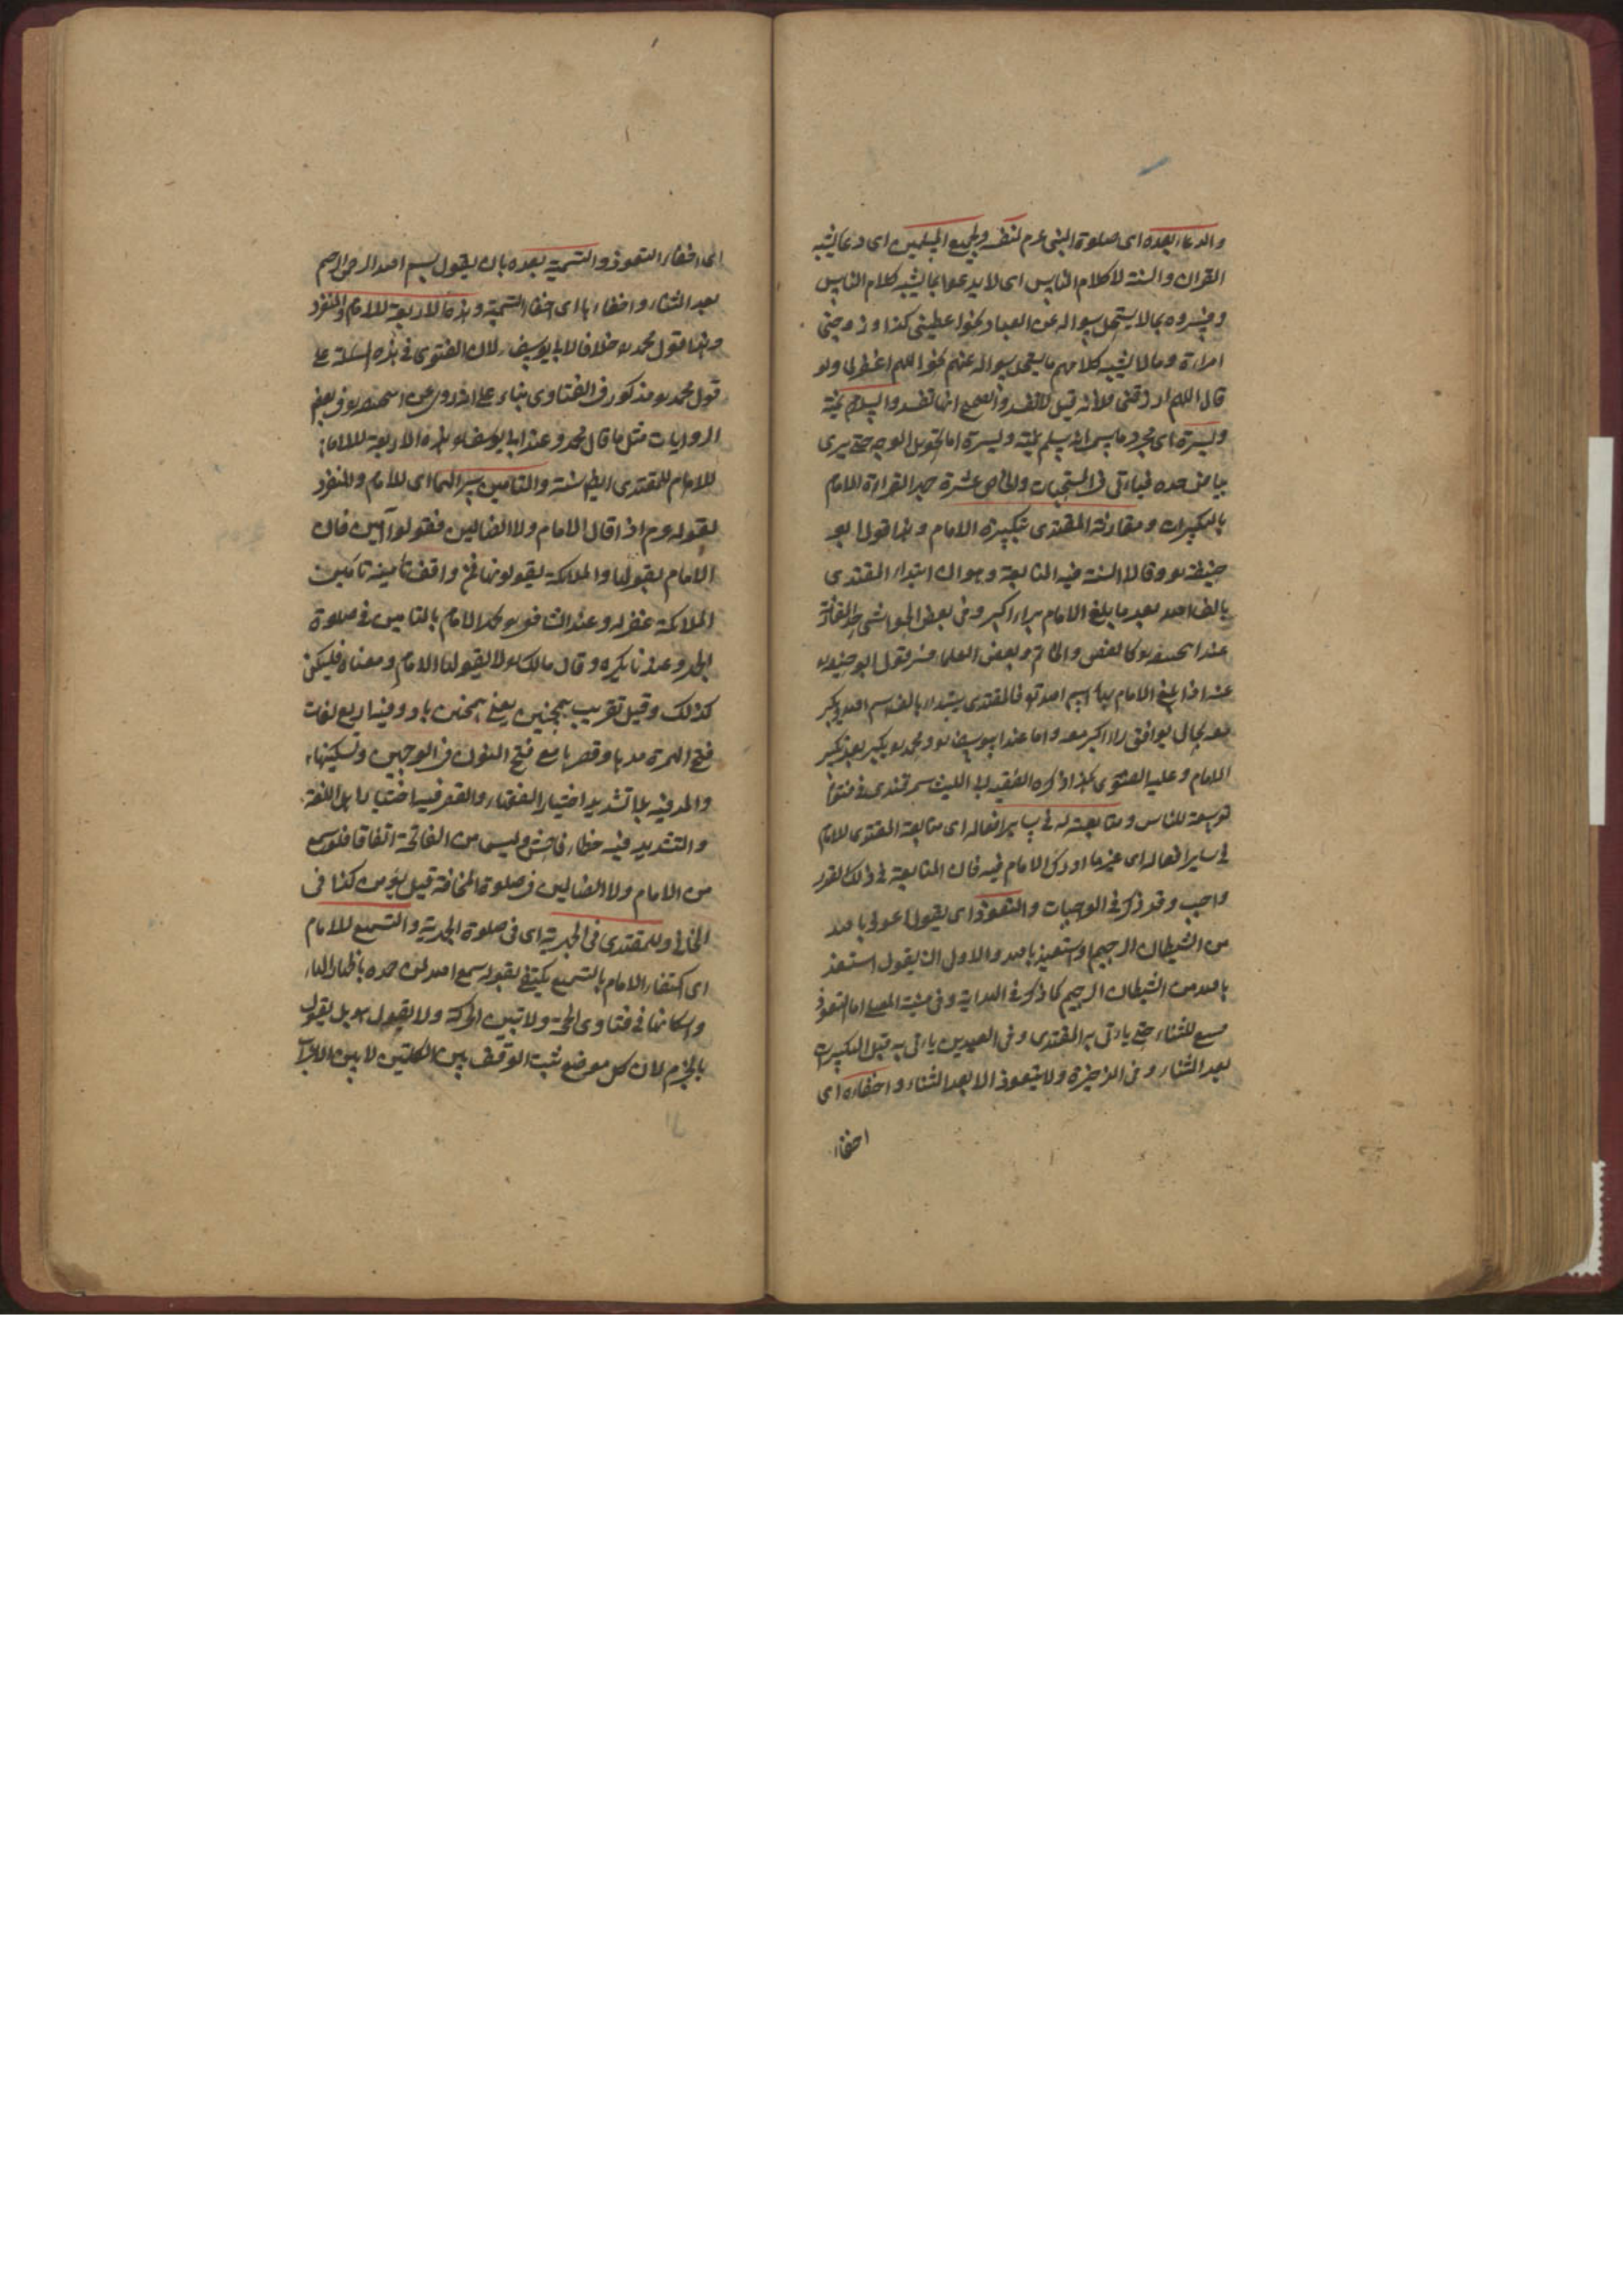 والدعاء بعده اى صلوة النبى عم لنفسه ولجميع المسلمين اى دعا يشبه
القران والسنة لا كلام الناس اى لا يدعوا بما يشبه كلام الناس
وفسروه بما لا يستحيل سواله عن العباد نحو اعطينى كذا وزوجنى
امراءة وما لا يشبه كلامهم ما يستحيل سواله عنهم نحو اللهم اغفر لى ولو
قال اللهم ارزقنى فلانة قيل لا تفسد والصحيح انها تفسد والسلام يمنة
ويسرة اى مجرد ما يسن انه يسلم يمنة ويسرة اما تحويل الوجه حتى يرى
بياض خده فياءتى فى المستحبات والخامس عشرة جهر القراءة للامام
بالتكبيرات ومقارنة المقتدى تكبيرة الامام وهذا قول ابو
حنيفة وقالا السنة فيه المتابعة وهو ان ابتداء المقتدى
بالف الله بعد ما بلغ الامام براء اكبر وفى بعض الحواشى حد المقارنة
عند وبعض العلماء فسر قول ابو حنيفة
عنه اذا بلغ الامام فالمقتدى يبتداء بالف اسم الله ويكبر
بعد بحال يوافق راء اكبر معه واما عند ابو يوسف ومحمد يكبر بعد تكبير
الامام وعليه الفتوى هكذا ذكره الفقيه ابو الليث سمرقندى
توسعة للناس ومتابعته له فى سائر افعاله اى متابعة المقتدى للامام
فى سائر افعاله اى غير ما ادرك الامام فيه فان المتابعة فى ذلك القدر
واجب وقد ذكر فى الواجبات والتعوذ اى يقول اعوذ بالله
من الشيطان الرجيم او استعيذ بالله والاولى ان يقول استعيذ
بالله من الشيطان الرجيم كما ذكر فى الهداية وفى منية المصلى اما التعوذ
تبع للثناء حتى ياءتى به المقتدى وفى العيدين ياءتى به قبل التكبيرات
بعد الثناء وفى الذخيرة ولا يتعوذ الا بعد الثناء واخفاءه اى
اخفاء
اى اخفاء التعوذ والتسمية بعده بان يقول بسم الله الرحمن الرحيم
بعد الثناء واخفاءها اى اخفاء التسمية وهذه الاربعة للامام والمنفرد
وهذا قول محمد خلافا لابى يوسف لان الفتوى فى هذه المسئلة على
قول محمد ومذكور فى الفتاوى بناء على انه روى عن فى بعض
الروايات مثل ما قال محمد وعند ابى يوسف هذه الاربعة للامام
للامام للمقتدى ايضا سنة والتامين سرا لهما اى للامام والمنفرد
لقوله عم اذا قال الامام ولا الضالين فقولوا آمين فان
الامام يقولها والملائكة يقولونها فمن وافق تامينه تامين
الملائكة غفر له وعند الشافعى يجهر الامام بالتامين فى صلوة
الجهر وعندنا يكره وقال مالك لا يقولها الامام ومعناه فليكن
كذلك وقيل تعريب وفيه اربع لغات
فتح الهمزة مدها وقصرها مع فتح النون فى الوجهين وتسكينها
والمد فيه بلا تشديد اختيار الفقهاء والقصر فيه اختيار اهل اللغة
والتشديد فيه خطاء فاحش وليس من الفاتحة اتفاقا فلو سمع
من الامام ولا الضالين فى صلوة المخافتة قيل يؤمن كذا فى
وللمقتدى فى الجهرية اى فى صلوة الجهرية والتسميع للامام
اى اكتفاء الامام بالتسميع يكتفى بقوله سمع الله لمن حمده باظهار الهاء
واسكانها فى فتاوى الحجة ولا تبين الحركة ولا يقول بل يقول
بالجزم لان كل موضع ثبت الوقف بين الكلمتين لا يبين الاعراب